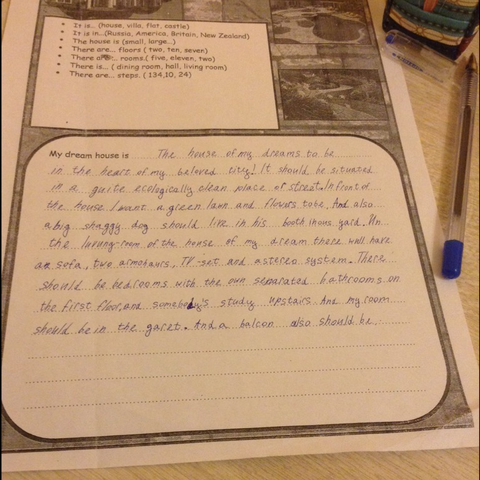 It is... (house, villa, flat, castle)
It is in...(Russia, America, Britain, New Zealand)
The house is (small, large...)
There are... floors ( two, ten, seven)
There are... rooms.( five, eleven, two)
There is... ( dining room, hall, living room)
There are... steps. ( 134,10, 24)
My dream house is The house of my dreams to be
in the heart of my beloved city! It should be situated
in a quite ecologically clean place of street. In front of
the house I want a green lawn and flowers to be. And also
a big shaggy dog should live in his yard. In
the living-room of the house of my dream there will have
a sofa, two armchairs, TV-set and a stereo system. There
should be bedrooms with the own separated bathrooms on
the first floor, and somebody's study upstairs. And my room
should be in the garet. And a balcon also should be.